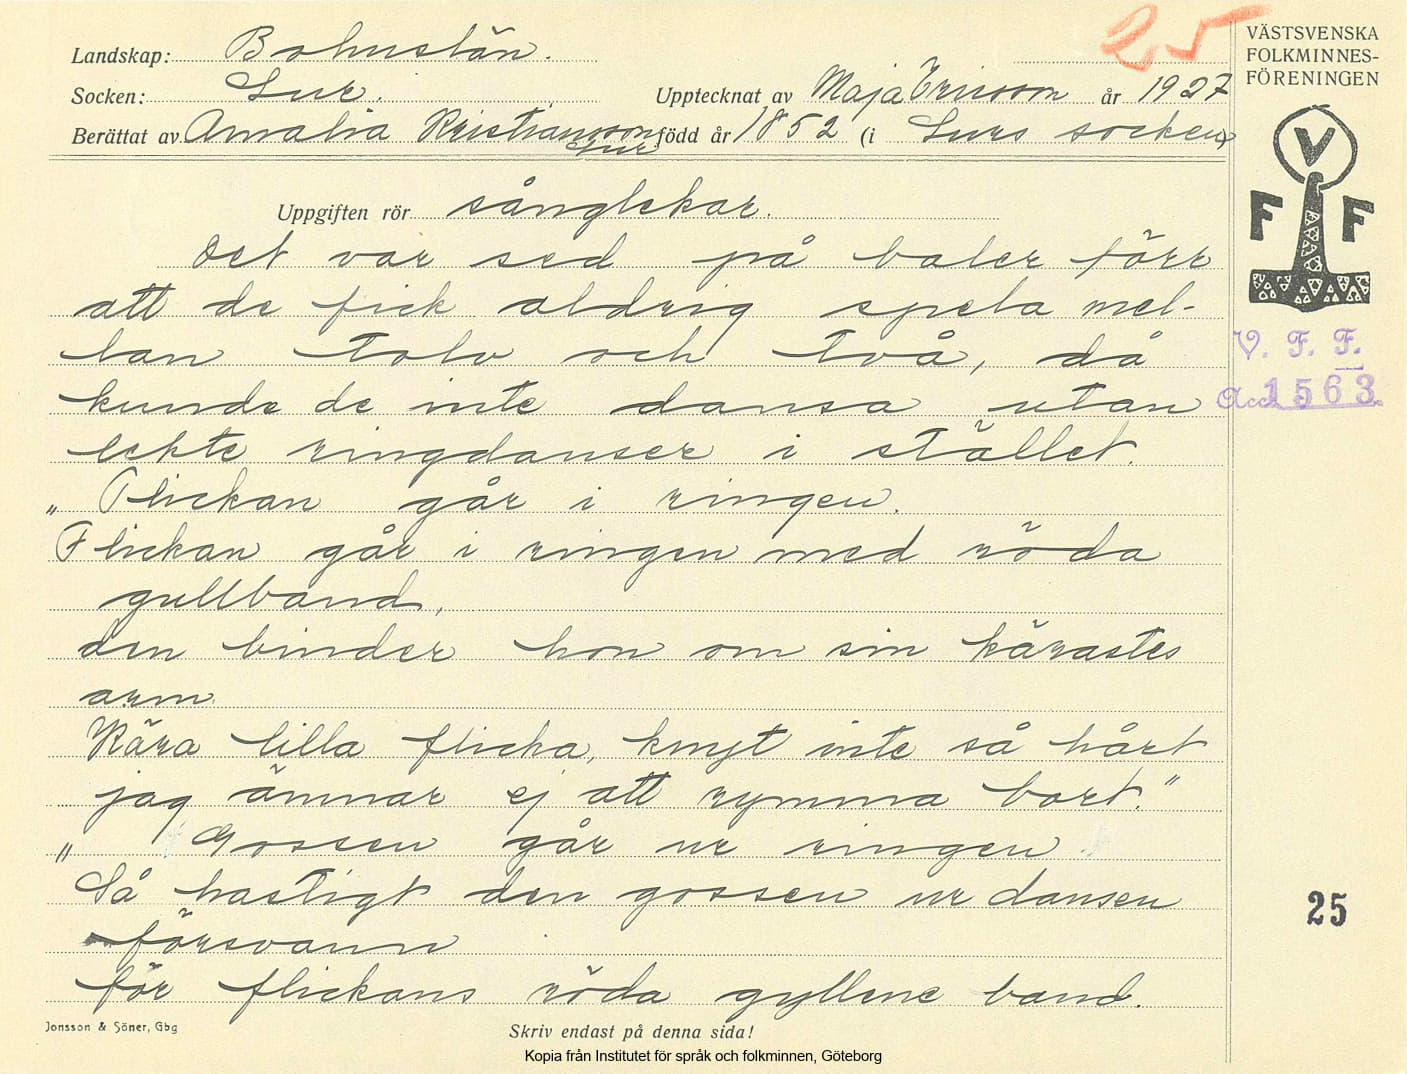 25
VÄSTSVENSKA
FOLKMINNES-
FÖRENINGEN
Landskap: Bohuslän.
Socken: Lur. Upptecknat av Maja Ericson år 1927
Berättat av Amalia Kristiansson Lur född år 1852 (i Lurs socken)
V
F F
Uppgiften rör sånglekar.
Det var sed på baler förr
att de fick aldrig spela mel-
lan tolv och två, då
kunde de inte dansa utan
lekte ringdanser i stället.
„ Flickan går i ringen.
Flickan går i ringen med röda
gullband,
den binder hon om sin kärastes
arm.
Kära lilla flicka, knyt inte så hårt
jag ämnar ej att rymma bort."
„ Gossen går ur ringen.
Så hastigt den gossen ur dansen
försvann
för flickans röda gyllene band.
V. F. F.
Acc. 1563
25
Jonsson & Söner, Gbg
Skriv endast på denna sida!
Kopia från Institutet för språk och folkminnen, Göteborg